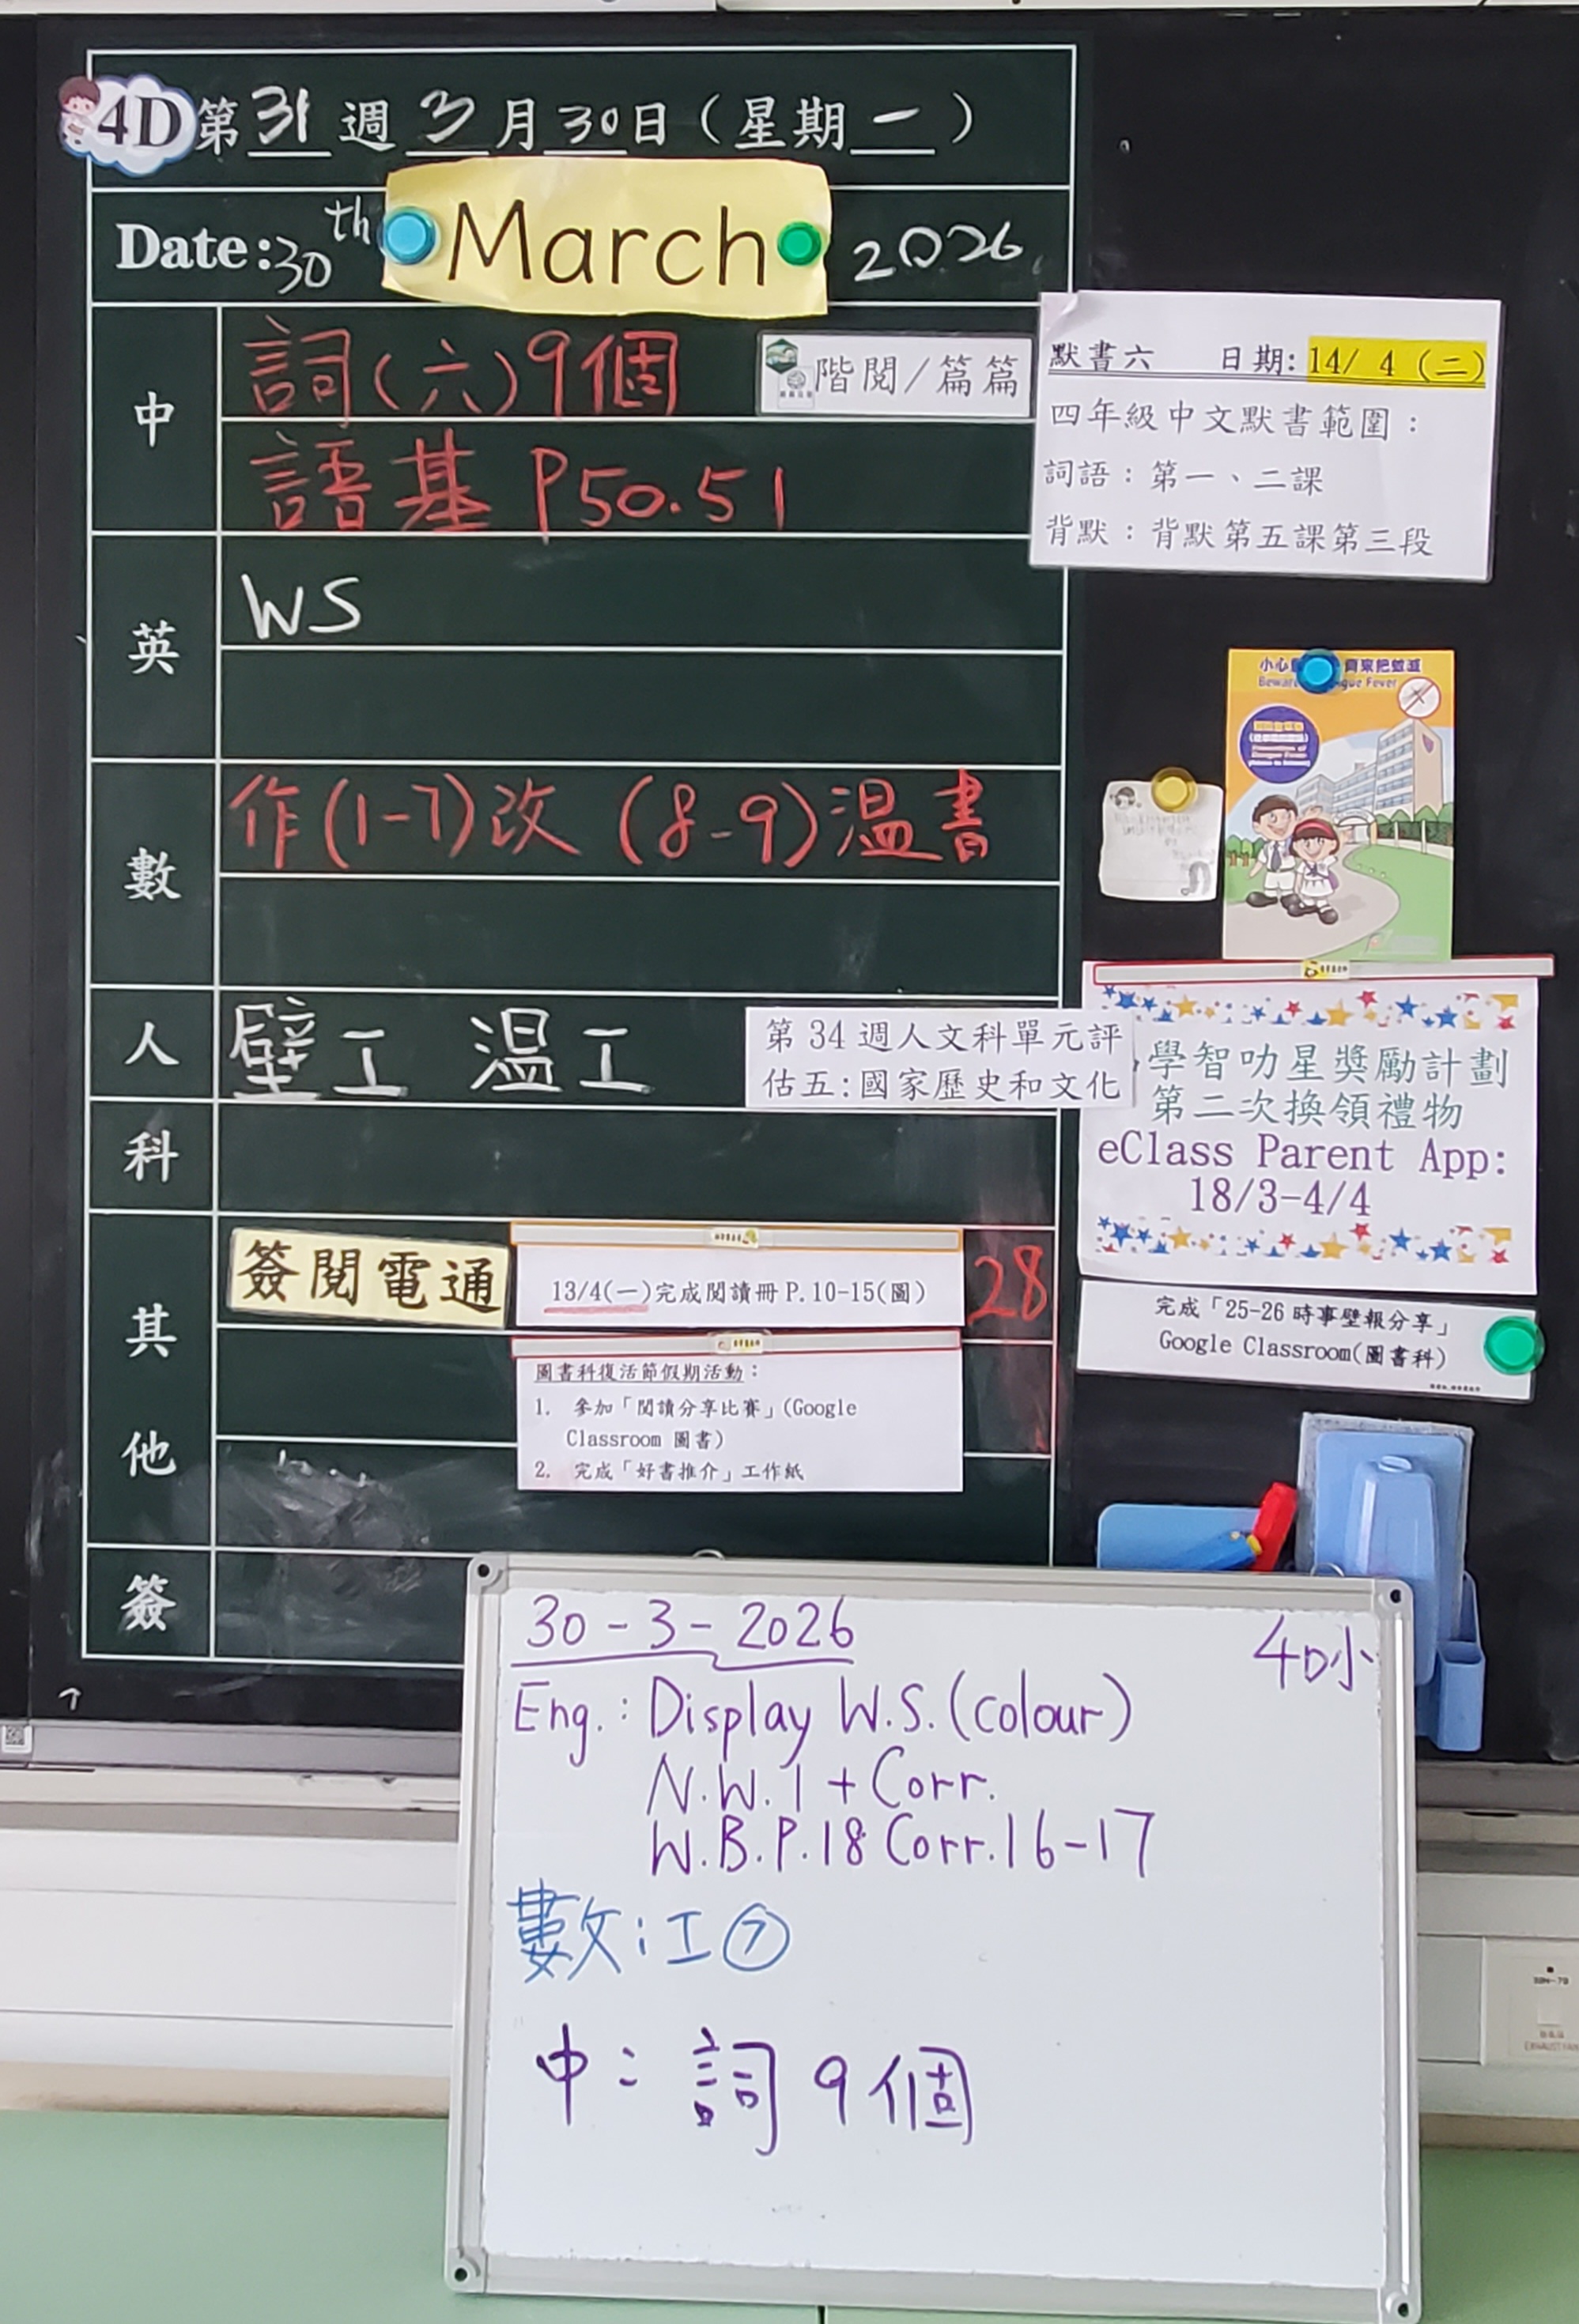 4D 第31週3月30日(星期一)
Date:30th March 2026
中
詞(六)9個
階閱/篇篇
語基 P50.51
英
WS
數
作(1-7)改 (8-9)温書
人
壁工 温工
第34週人文科單元評
估五:國家歷史和文化
科
其
他
簽閱電通
13/4(一)完成閱讀冊P.10-15(圖)
28
圖書科復活節假期活動:
1. 參加「閱讀分享比賽」(Google
Classroom 圖書)
2. 完成「好書推介」工作紙
簽
默書六 日期:14/ 4 (二)
四年級中文默書範圍:
詞語:第一、二課
背默:背默第五課第三段
小心 齊來把蚊滅
Fever
學智叻星獎勵計劃
第二次換領禮物
eClass Parent App:
18/3-4/4
完成「25-26時事壁報分享」
Google Classroom(圖書科)
30-3-2026
4D小
Eng.: Display W.S.(colour)
N.W.1 + Corr.
W.B.P.18 Corr.16-17
數:工⑦
中:詞9個